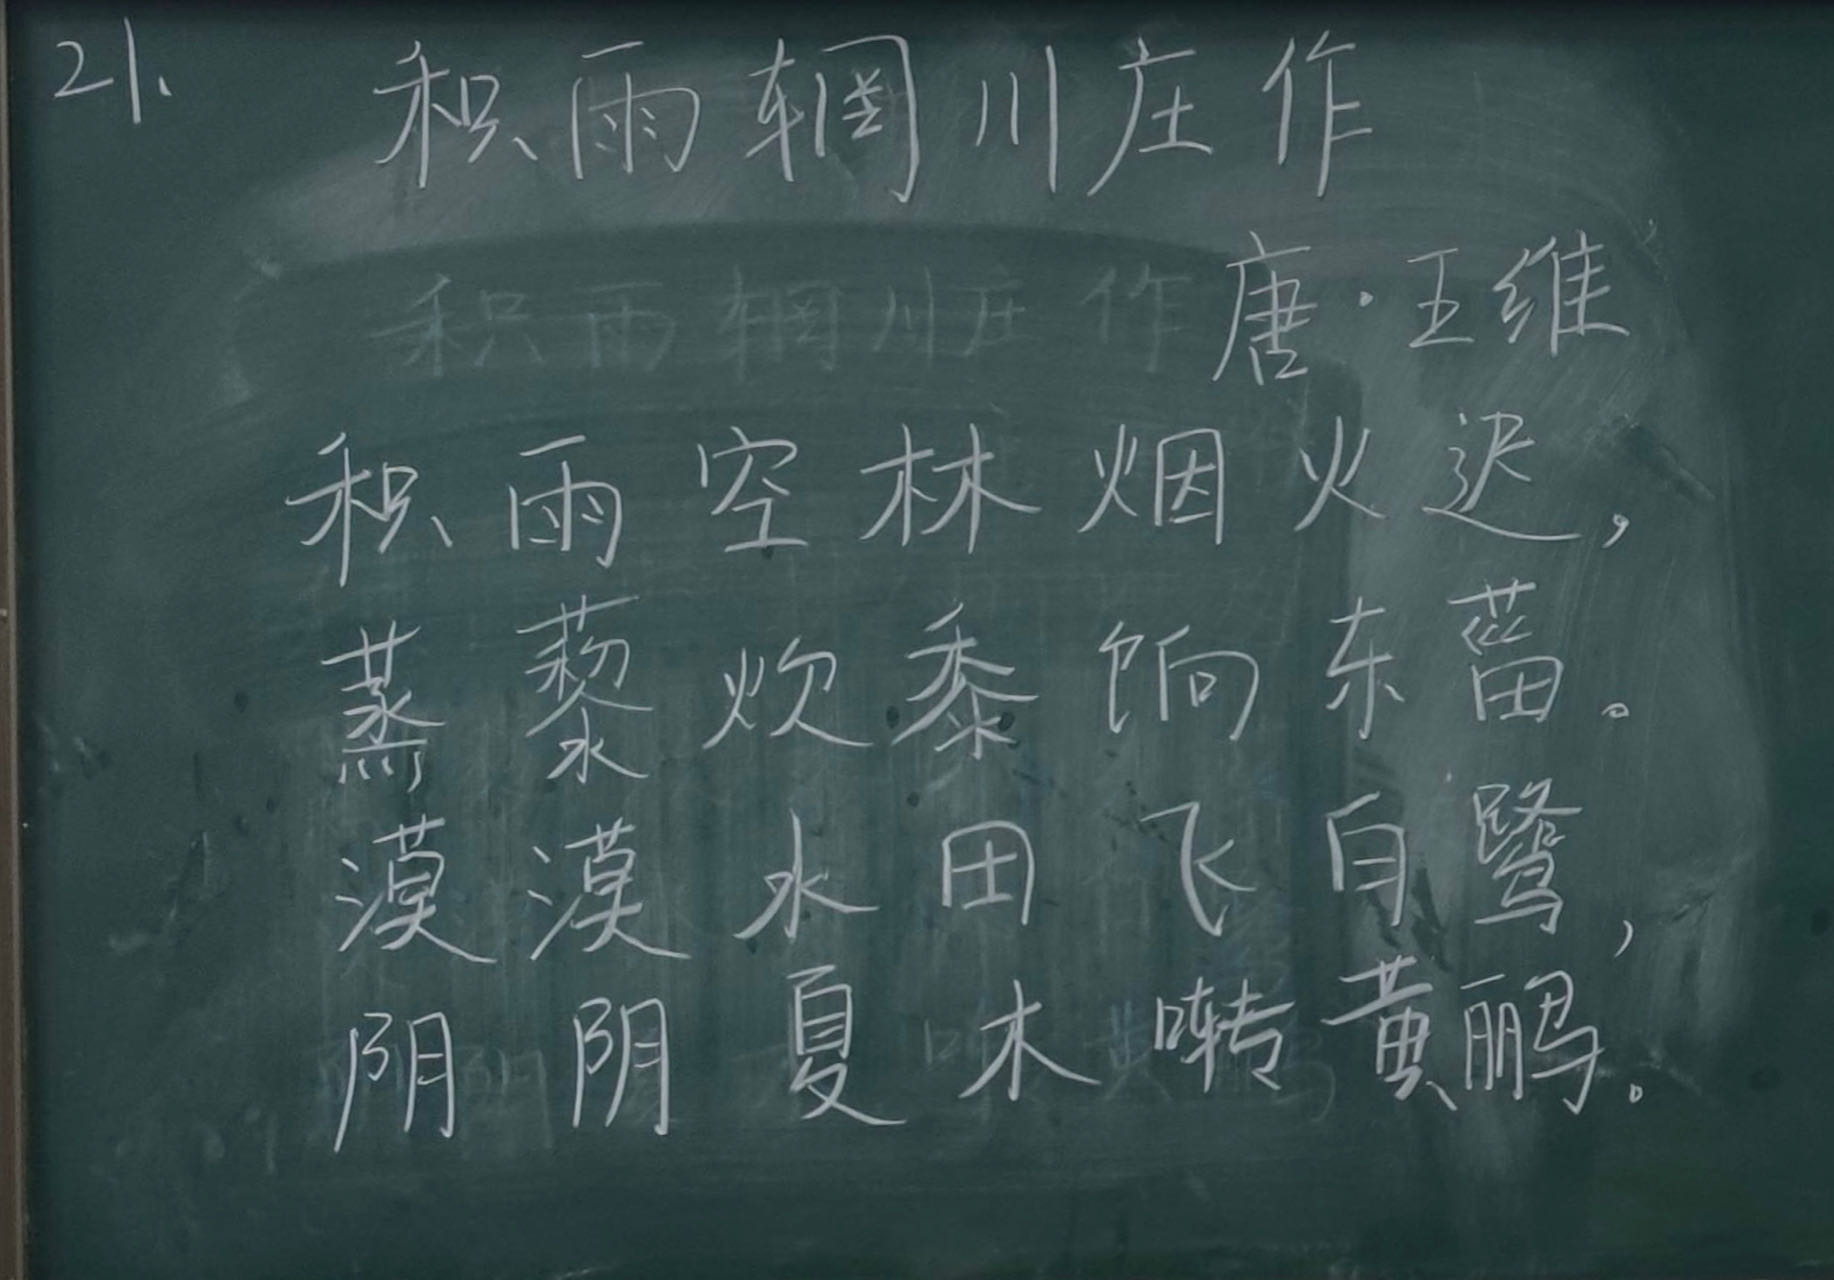 21.
积雨辋川庄作
积雨辋川庄作
唐·王维
积雨空林烟火迟，
蒸藜炊黍饷东菑。
漠漠水田飞白鹭，
阴阴夏木啭黄鹂。